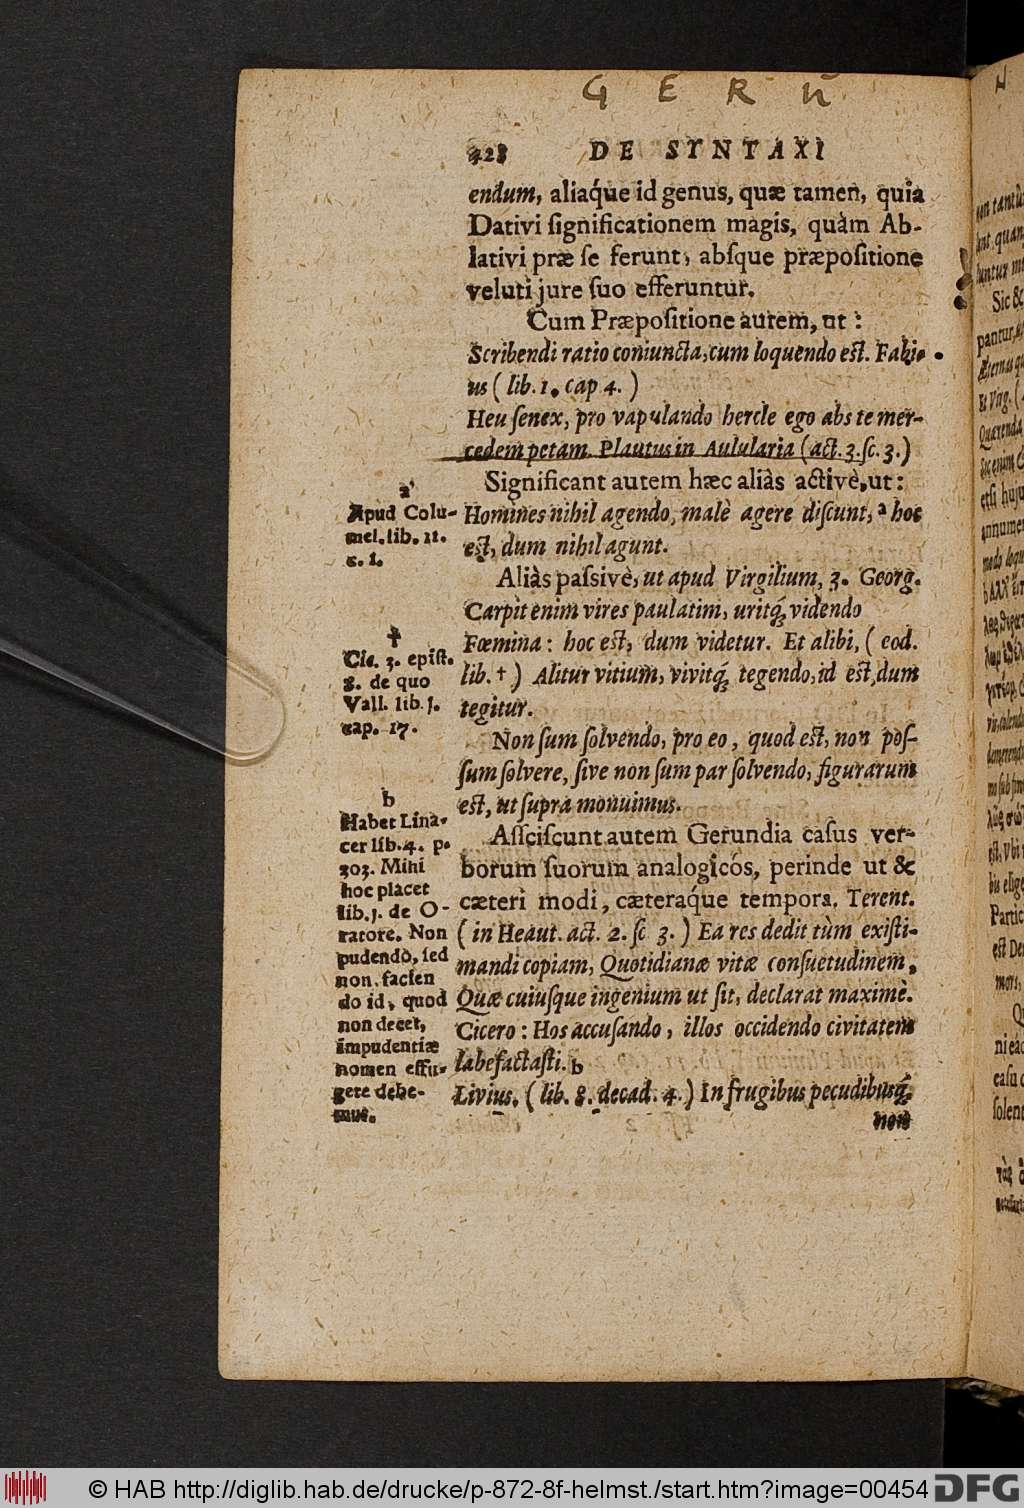 G E R ũ
428 DE SYNTAXI
endum, aliaq́ue id genus, quæ tamen, quia
Dativi ſignificationem magis, quàm Ab-
lativi præ ſe ferunt, abſque præpoſitione
veluti jure ſuo efferuntur.
Cum Præpoſitione autem, ut:
Scribendi ratio coniuncta, cum loquendo eſt. Fabi-
us ( lib. 1. cap 4. )
Heu ſenex, pro vapulando hercle ego abs te mer-
cedem petam. Plautus in Aulularia (act. 3. ſc. 3.)
Significant autem hæc aliàs activè, ut:
Homines nihil agendo, malè agere diſcunt, ª hoc
eſt, dum nihil agunt.
Aliàs paſſivè, ut apud Virgilium, 3. Georg.
Carpit enim vires paulatim, uritq́; videndo
Fœmina: hoc eſt, dum videtur. Et alibi, ( eod.
lib. † ) Alitur vitium, vivitq́; tegendo, id eſt, dum
tegitur.
Non ſum ſolvendo, pro eo, quod eſt, non poſ-
ſum ſolvere, ſive non ſum par ſolvendo, figurarum
eſt, ut ſupra monuimus.
Aſſciſcunt autem Gerundia caſus ver-
borum ſuorum analogicós, perinde ut &
cæteri modi, cæteraq́ue tempora. Terent.
( in Heaut. act. 2. ſc 3. ) Ea res dedit tùm exiſti-
mandi copiam, Quotidianæ vitæ conſuetudinem,
Quæ cuiuſque ingenium ut ſit, declarat maximè.
Cicero: Hos accuſando, illos occidendo civitatem
labefactaſti. b
Livius. ( lib. 8. decad. 4. ) In frugibus pecudibusq́;
non
a
Apud Colu-
mel. lib. 11.
c. 1.
†
Cic. 3. epiſt.
8. de quo
Vall. lib. 1.
cap. 17.
b
Habet Lina-
cer lib. 4. p.
303. Mihi
hoc placet
lib. 1. de O-
ratore. Non
pudendo, ſed
non. facien
do id, quod
non decet,
impudentiæ
nomen effu-
gere debe-
mus.
© HAB http://diglib.hab.de/drucke/p-872-8f-helmst./start.htm?image=00454 DFG